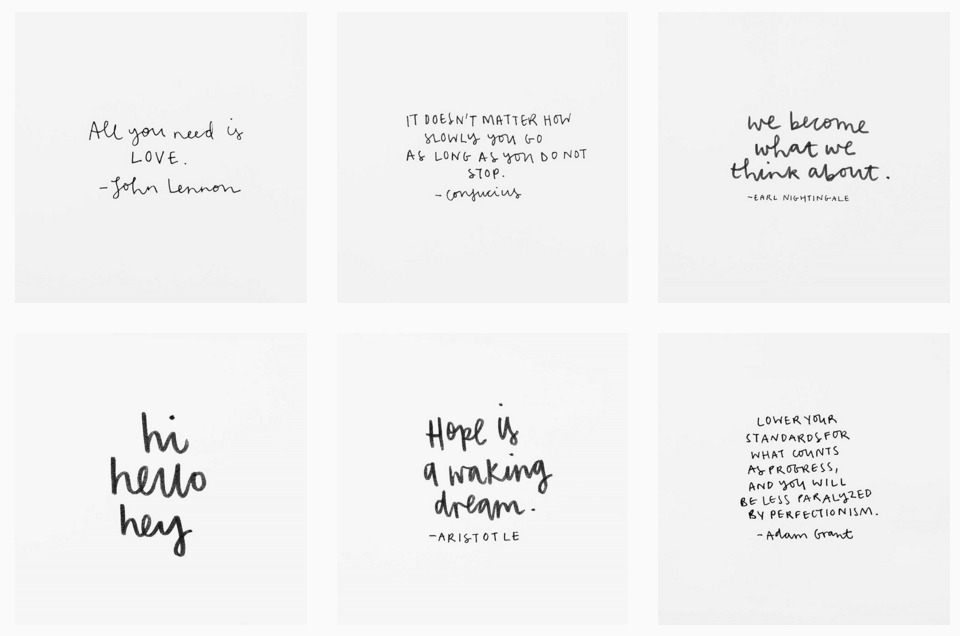 All you need is
LOVE.
-John Lennon
IT DOESN'T MATTER HOW
SLOWLY YOU GO
AS LONG AS YOU DO NOT
STOP.
-Confucius
we become
what we
think about.
-EARL NIGHTINGALE
hi
hello
hey
Hope is
a waking
dream.
-ARISTOTLE
LOWER YOUR
STANDARDS FOR
WHAT COUNTS
AS PROGRESS,
AND YOU WILL
BE LESS PARALYZED
BY PERFECTIONISM.
-Adam Grant